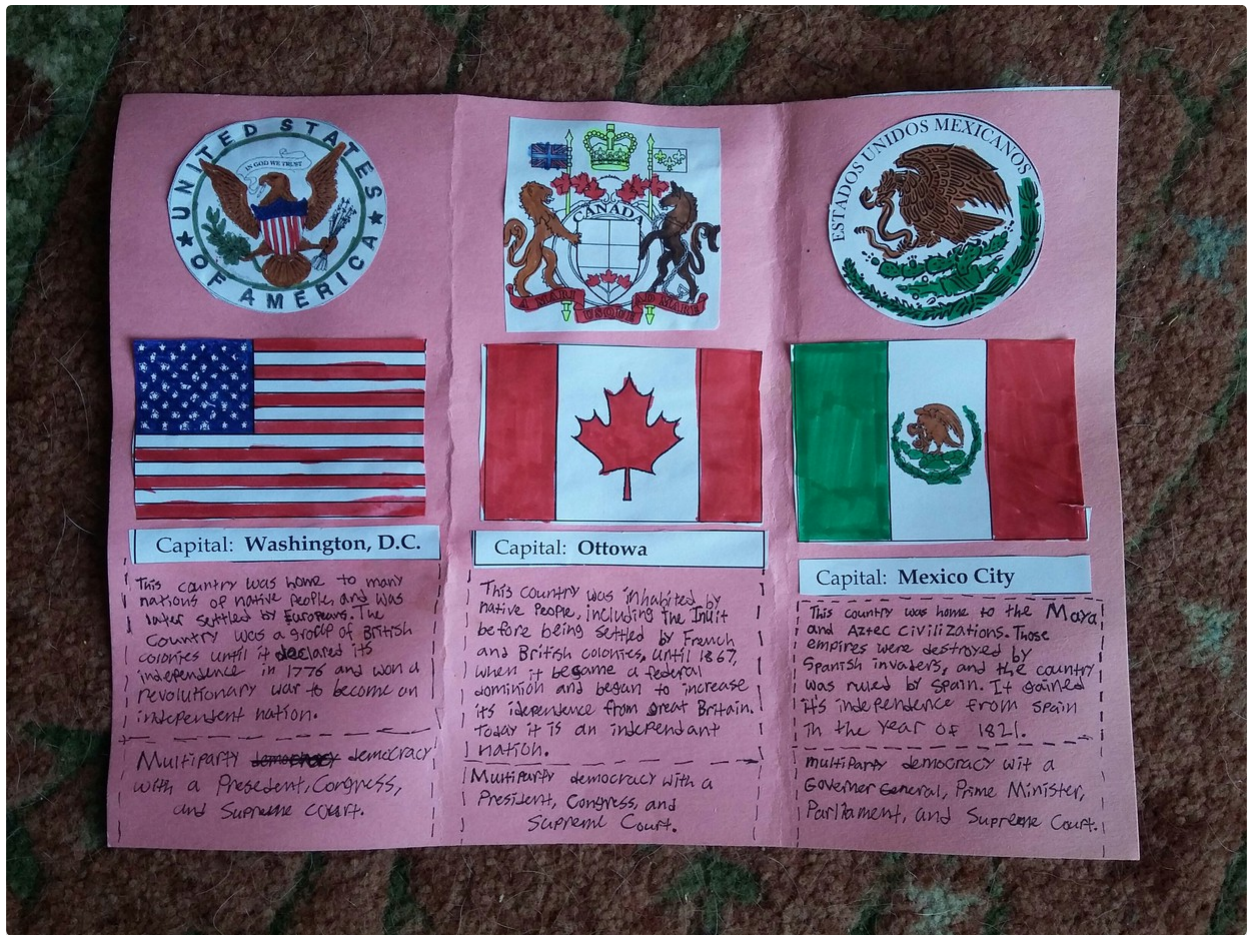 UNITED STATES
OF AMERICA
IN GOD WE TRUST
Capital: Washington, D.C.
This country was home to many
nations of native peoples, and was
later settled by Europeans. The
Country was a group of British
colonies until it declared its
independence in 1776 and won a
revolutionary war to become an
independent nation.
Multiparty democracy democracy
with a Presedent, Congress,
and Supreme Court.
CANADA
A MARI USQUE AD MARE
Capital: Ottowa
This country was inhabited by
native People, including the Inuit
before being settled by French
and British colonies, until 1867,
when it became a federal
dominion and began to increase
its idependence from great Britain.
Today it is an independant
nation.
Multiparty democracy with a
President, Congress, and
Supreme Court.
ESTADOS UNIDOS MEXICANOS
Capital: Mexico City
This country was home to the Maya
and Aztec civilizations. Those
empires were destroyed by
Spanish invaders, and the country
was ruled by Spain. It gained
its independence from Spain
in the year of 1821.
multiparty democracy wit a
Governer General, Prime Minister,
Parliament, and Supreme Court.